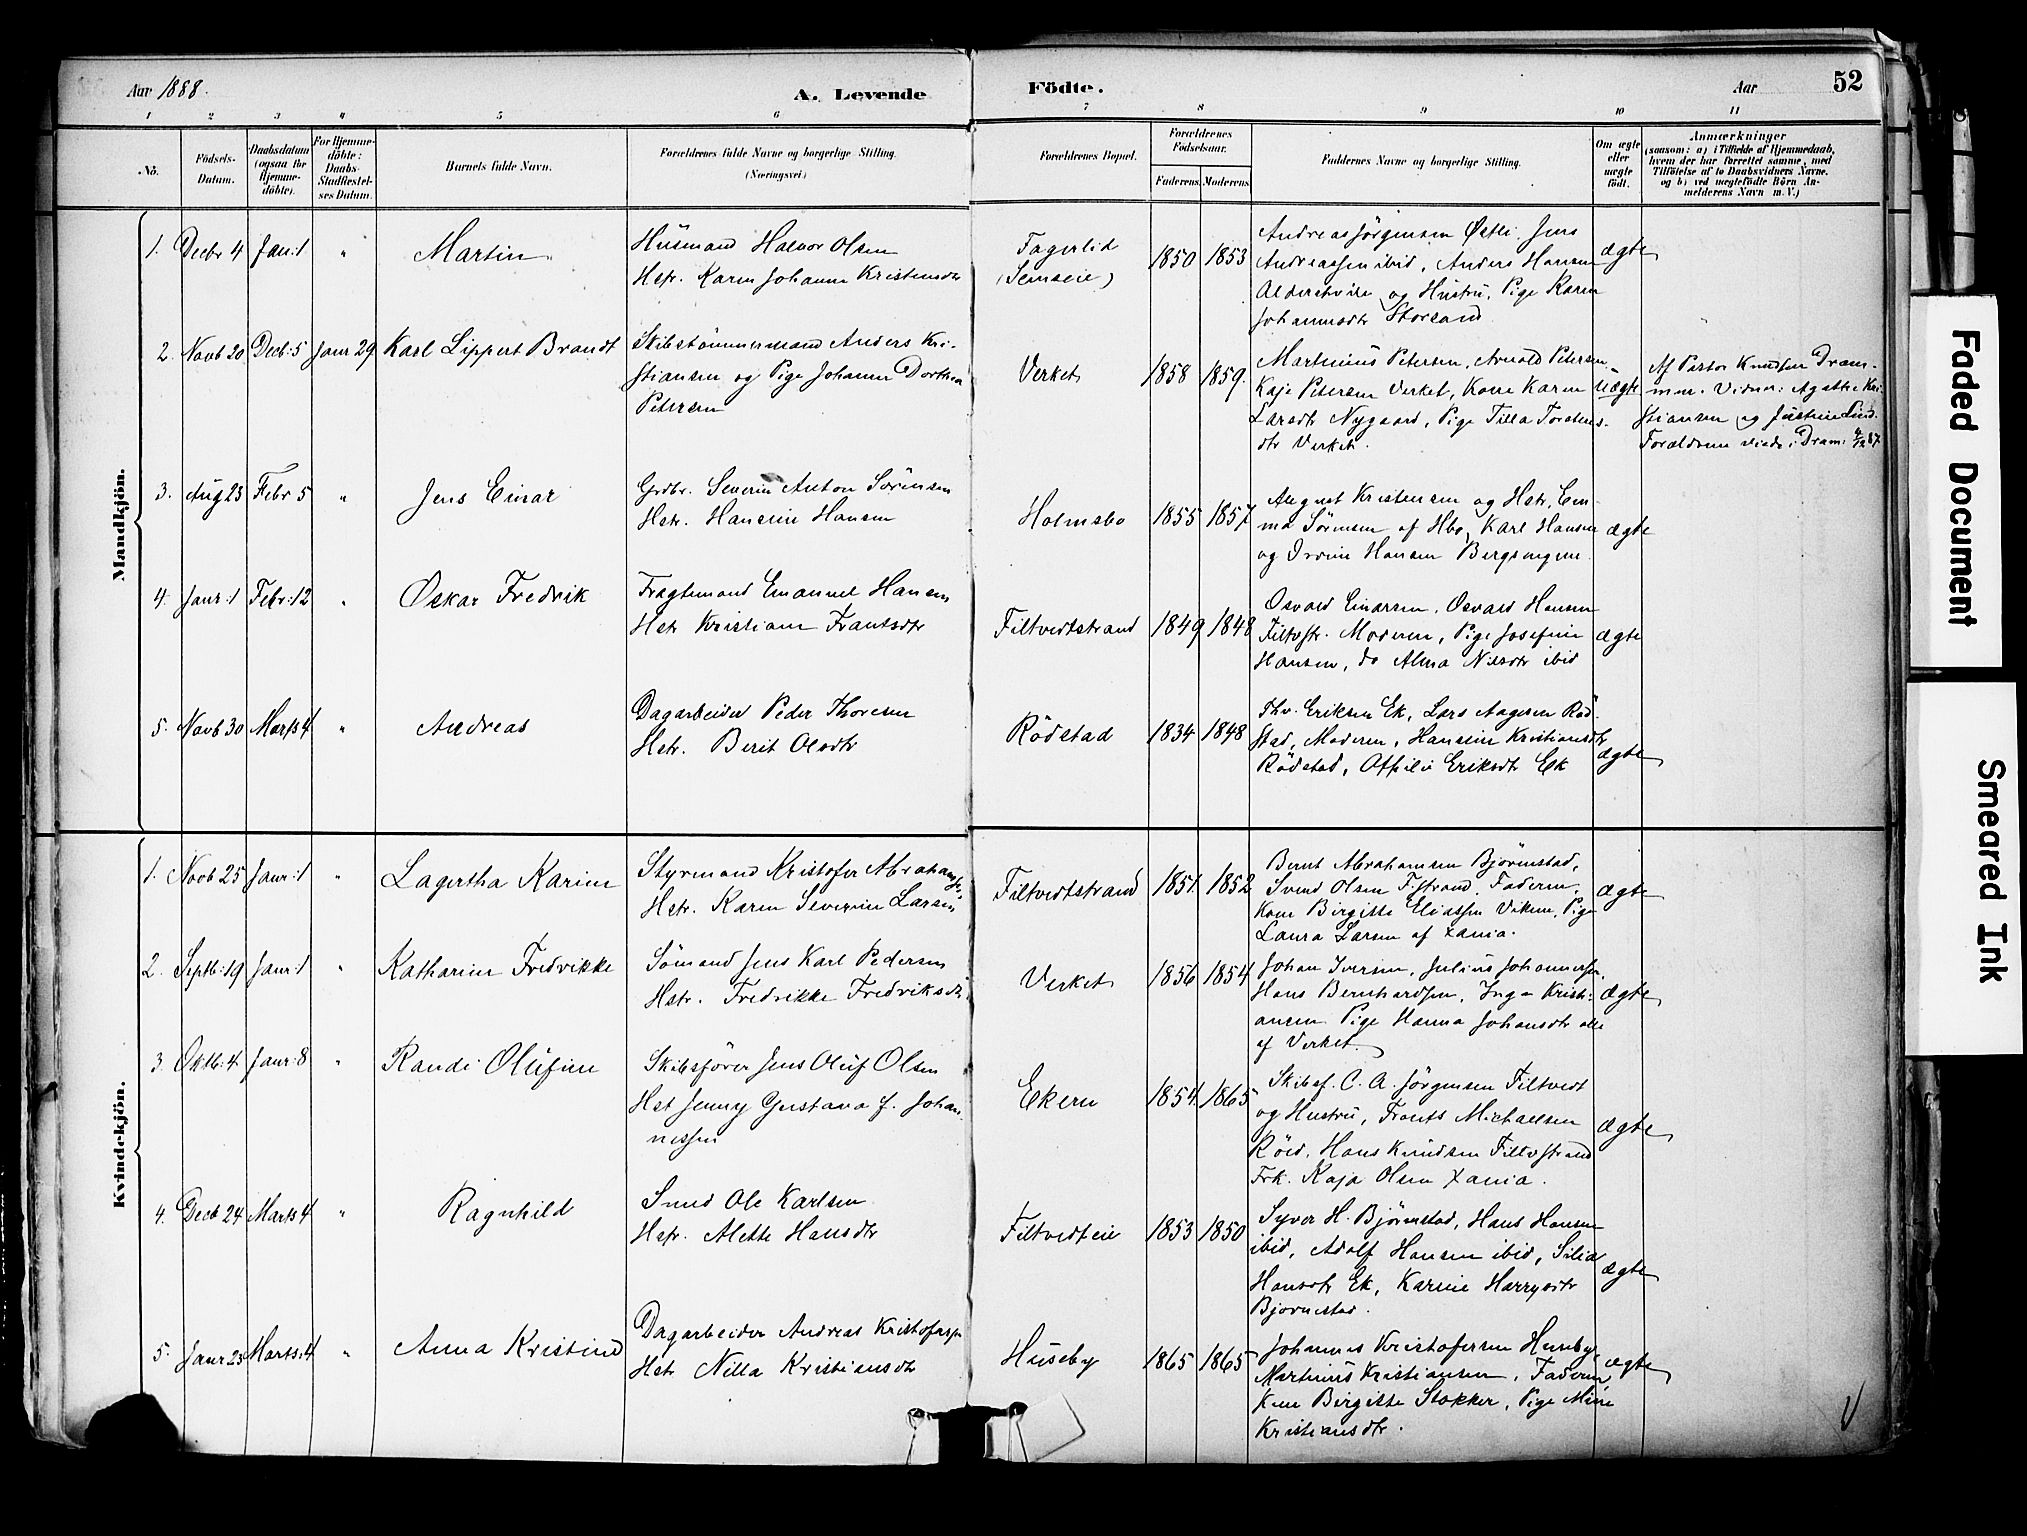 Aar 1888.
A. Levende
Födte.
Aar
52
1 2 3 4 5 6 7 8 9 10 11
No.
Födsels-
Datum.
Daabsdatum
(ogsaa for
Hjemme-
döbte).
For Hjemme-
döbte:
Daabs-
Stadfæstel-
ses Datum.
Barnets fulde Navn.
Forældrenes fulde Navne og borgerlige Stilling.
(Næringsvei)
Forældrenes Bopæl.
Forældrenes
Födselsaar.
Faderens Moderens
Faddernes Navne og borgerlige Stilling.
Om ægte
eller
uægte
födt.
Anmærkninger
(saasom: a) i Tilfælde af Hjemmedaab,
hvem der har forrettet samme, med
Tilföielse af to Daabsvidners Navne,
og b) ved uægtefödte Börn An-
melderens Navn m. V.)
Mandkjön.
1. Decbr 4 Jan: 1 " Martin
Husmand Halvor Olsen
Hstr. Karen Johanne Kristensdtr
Fagerlid
(Semseie)
1850 1853
Andreas Jörgensen Østli, Jens
Andreassen ibid, Anders Hansen
og Hustru, Pige Karen
Johannesdtr Storsand
ægte
2. Novb 20 Decb: 5 Janr 29 Karl Lippert Brandt
Skibstömmermand Anders Kri-
stiansen og Pige Johanne Dorthea
Petersen
Verket
1858 1859.
Martinius Petersen, Arnold Petersen
Kaje Petersen Verket, Kone Karen
Larsdtr Nygaard, Pige Tilla Torstens-
dtr Verket.
Uægte
Af Pastor Knudsen Dram-
men. Vidner: Agathe Kri-
stiansen og Justine Lind.
Forældrene viede i Dram:
3. Aug 23 Febr 5 " Jens Einar
Grdbr. Severin Anton Sørensen
Hstr. Hansine Hansen
Holmsbo
1855 1857
August Kristensen og Hstr, Em-
ma Sørensen af Hbo, Karl Hansen
og Hansen Bergsengene
ægte
4. Janr: 1 Febr: 12 " Oskar Fredrik
Fragtemand Emanuel Hansen
Hstr Kristiane Frantsdtr
Filtvedtstrand
1849 1848
Osvald Einarsen, Osvald Hansen
Filtvstr. Moderen, Pige Josefine
Hansen, do Alma Nilsdtr ibid
ægte
5. Novb 30 Marts 4 " Andreas
Dagarbeider Peder Thoresen
Hstr. Berit Olsdtr
Rödstad
1834 1848
Thv. Eriksen Ek, Lars Aagesen Röd-
stad, Moderen, Hansine Kristiansdtr
Rödstad, Othilie Eriksdtr Ek
ægte
Kvindekjön.
1. Novb 25 Janr: 1 " Lagertha Karine
Styrmand Kristofer Abrahamsen
Hstr. Karen Severine Larsen
Filtvedtstrand
1851. 1852
Bernt Abrahamsen Björnstad,
Svend Olsen F.strand. Faderen,
Kone Birgitte Eliassen Viken, Pige
Laura Larsen af Xania.
ægte
2. Septb: 19 Janr: 1 " Katharine Fredrikke
Sömand Jens Karl Pedersen
Hstr. Fredrikke Fredriksdtr
Verket
1856 1854
Johan Iversen, Julius Johannessen,
Hans Bernhardsen, Inga Kristi-
ansen Pige Hanna Johansdtr alle
af Verket.
ægte
3. Oktb: 4. Janr: 8 " Randi Olufine
Skibsförer Jens Oluf Olsen
Hst Jenny Gustava f. Johan-
nessen
Ekern
1854. 1865
Skibsf. C. A. Jörgensen Filtvedt
og Hustru, Frants Michaelsen
Röed, Hans Knudsen Filtvstrand
Frk. Kaja Olsen Xania.
ægte
4. Decb 24 Marts 4 " Ragnhild
Smed Ole Karlsen
Hstr. Alette Hansdtr
Filtvedteie
1853 1850
Syver H. Björnstad, Hans Hansen
ibid, Adolf Hansen ibid, Silia
Hansdtr Ek, Karine Harrysdtr
Björnestad.
ægte
5. Janr 23 Marts: 4 " Anna Kristine
Dagarbeider Andreas Kristofersen
Hstr Nilla Kristiansdtr
Huseby
1865 1865
Johannes Kristofersen Huseby,
Martinius Kristiansen, Faderen,
Kone Birgitte Stokker, Pige Mine
Kristiansdtr.
ægte
Faded Document
Smeared Ink